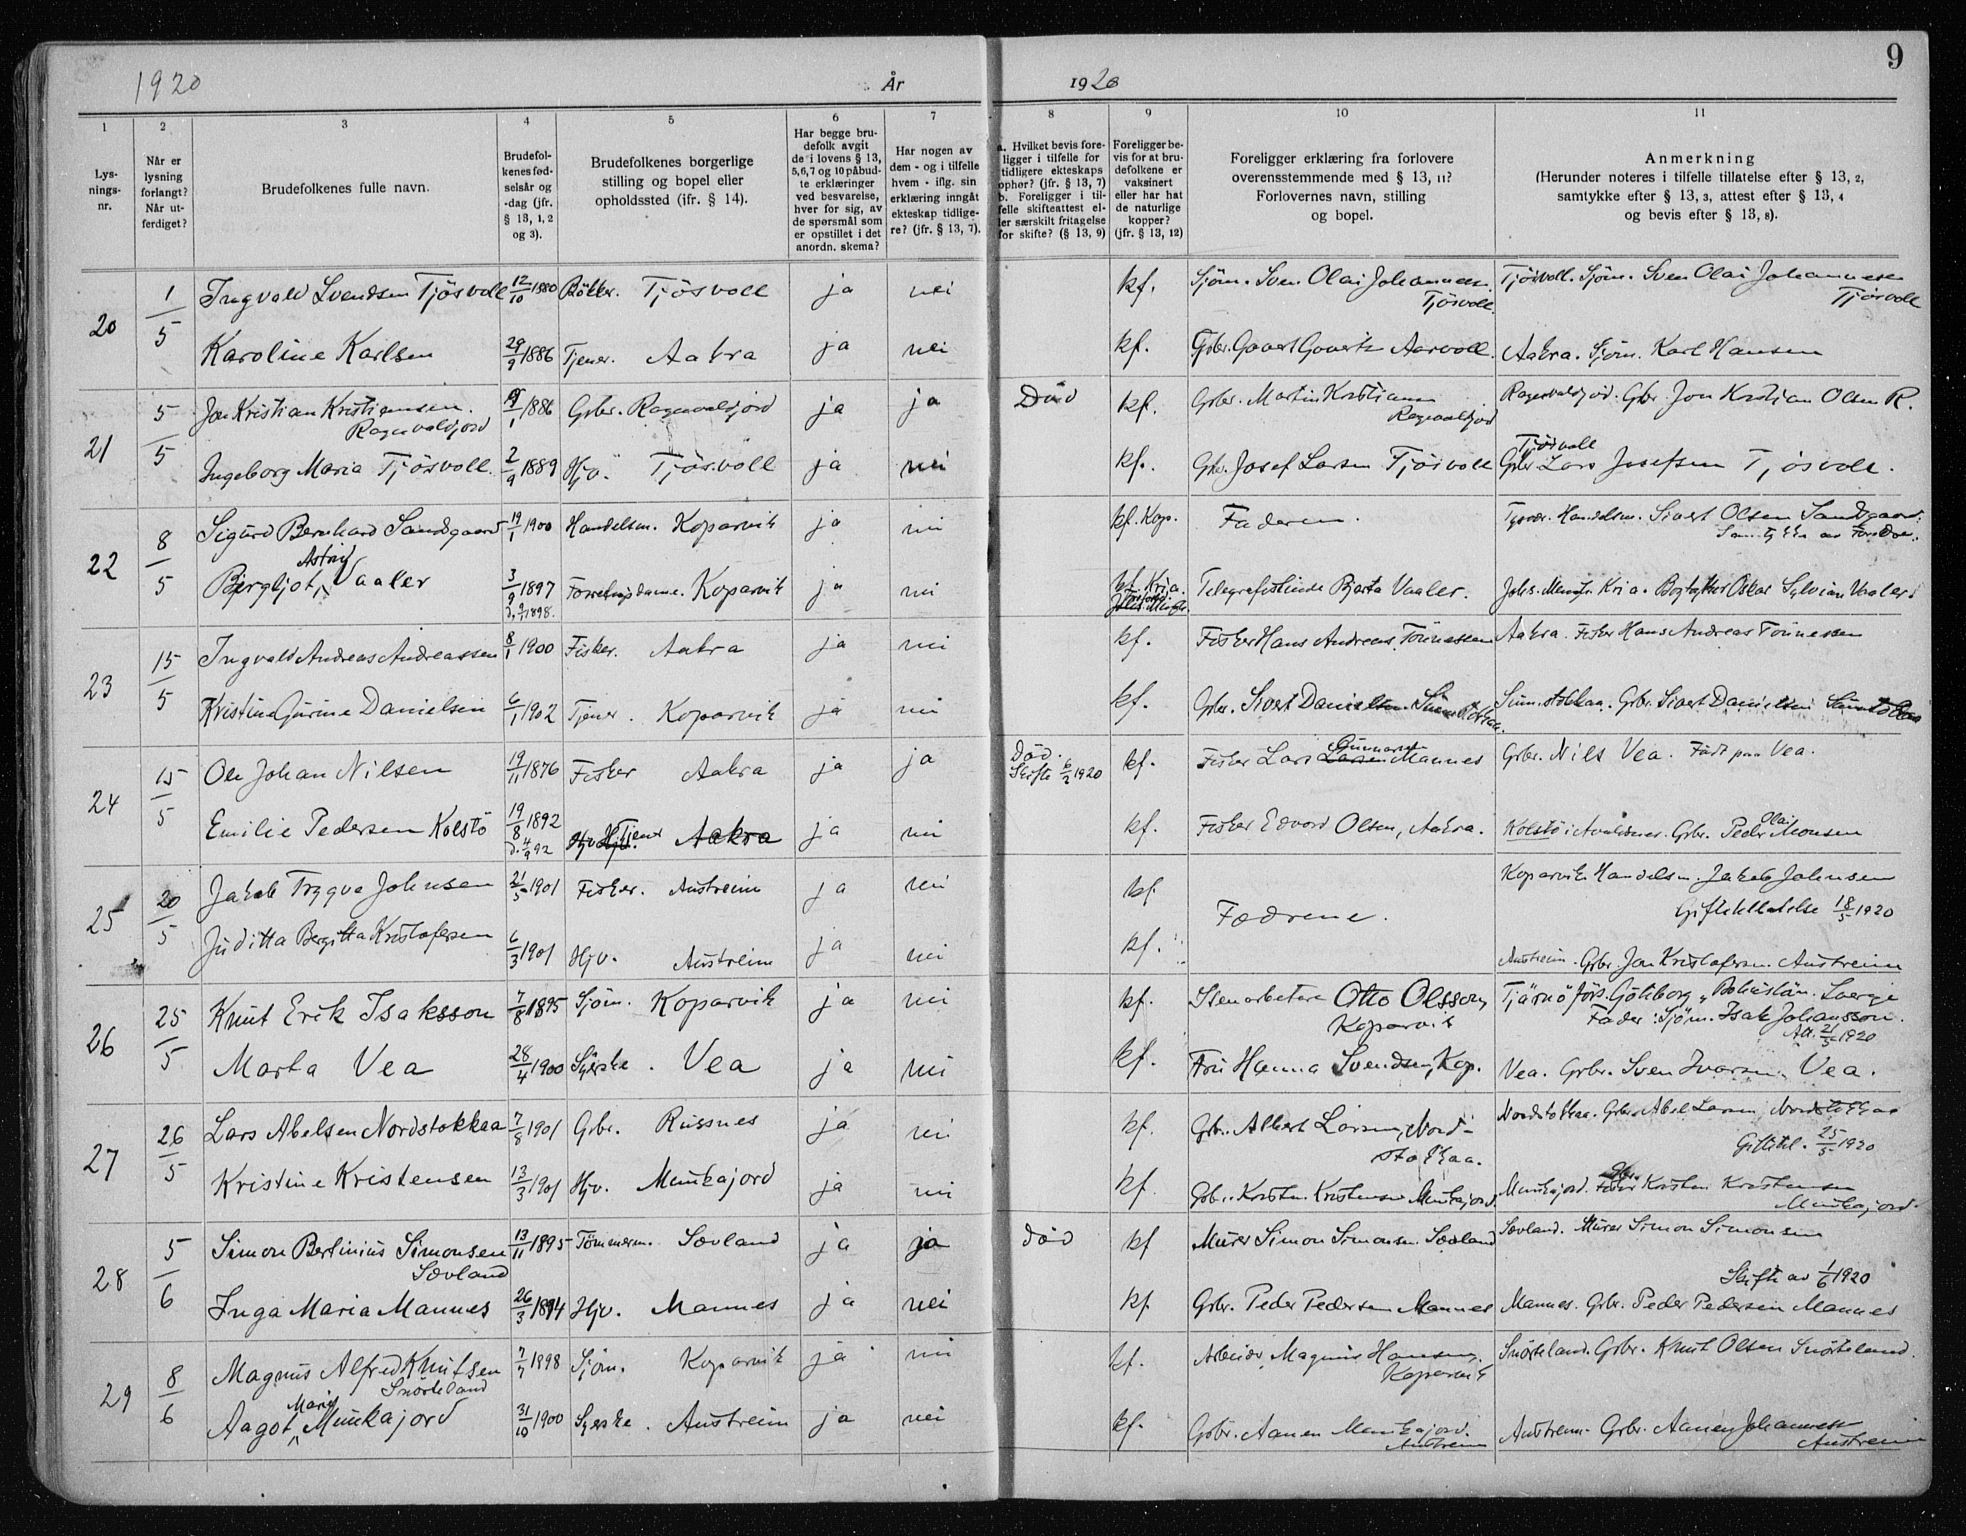 1920 År 1920 9
1 2 3 4 5 6 7 8 9 10 11
Lys-
nings-
nr.
Når er
lysning
forlangt?
Når ut-
ferdiget?
Brudefolkenes fulle navn.
Brudefol-
kenes fød-
selsår og
-dag (jfr.
§ 13, 1, 2
og 3).
Brudefolkenes borgerlige
stilling og bopel eller
opholdssted (jfr. § 14).
Har begge bru-
defolk avgit
de i lovens § 13,
5,6,7 og 10 påbud-
te erklæringer
ved besvarelse,
hver for sig, av
de spørsmål som
er opstillet i det
anordn. skema?
Har nogen av
dem - og i tilfelle
hvem - iflg. sin
erklæring inngått
ekteskap tidlige-
re? (jfr. § 13, 7).
a. Hvilket bevis fore-
ligger i tilfelle for
tidligere ekteskaps
ophør? (jfr. § 13, 7)
b. Foreligger i til-
felle skifteattest el-
ler særskilt fritagelse
for skifte? (§ 13, 9)
Foreligger be-
vis for at bru-
defolkene er
vaksinert
eller har hat
de naturlige
kopper?
(jfr. § 13, 12)
Foreligger erklæring fra forlovere
overensstemmende med § 13, 11?
Forlovernes navn, stilling
og bopel.
Anmerkning
(Herunder noteres i tilfelle tillatelse efter § 13, 2,
samtykke efter § 13, 3, attest efter § 13, 4
og bevis efter § 13, 8).
20 1/5 Ingvald Svendsen Tjösvoll 12/10 1880 Bökker. Tjösvoll ja nei kf. Sjöm. Sven Olai Johannesen Tjösvoll. Tjösvoll. Sjöm. Sven Olai Johannesen Tjösvoll
Karoline Karlsen 29/9 1886 Tjener. Aakra ja nei kf. Gbr. Govert Govertsen Aarvoll. Aakra. Sjöm. Karl Hansen
21 5/5 Jon Kristian Kristiansen. Ragnvaldjord /1 1886 Grbr. Ragnvaldjord ja ja Död kf. Grbr. Martin Kristiansen Ragnvaldjord Ragnvaldjord. Gbr. Jon Kristian Olsen R.
Ingeborg Maria Tjösvoll. 2/9 1889 Hjv. Tjösvoll ja nei kf. Gbr. Josef Larsen Tjösvoll Tjösvoll Grbr Lars Josefsen Tjösvoll.
22 8/5 Sigurd Bernhard Sandgaard 19/1 1900 Handelsm. Koparvik ja nei kf. Kop. Faderen. Tysvær. Handelsm. Sivert Olsen Sandgaard.
Bergljot Astrid Vaaler 3/9 1897 1898. Forretnigsdame. Koparvik ja nei kf. Kria. Telegrafistinde Bjarta Vaaler. Johs. Menigh. Kria. Bogtrykker Oskar Sylvian Vaaler
23 15/5 Ingvald Andreas Andreassen 8/1 1900 Fisker. Aakra ja nei kf. Fisker Hans Andreas Tönnesen Aakra. Fisker Hans Andreas Tönnessen
Kristine Gurine Danielsen 6/1 1902 Tjener. Koparvik ja nei kf. Grbr. Sivert Danielsen. Sunnstokkaa. Grbr. Sivert Danielsen
24 15/5 Ole Johan Nilsen 19/11 1876 Fisker Aakra ja ja Död. Skifte 6/2 1920 kf. Fisker Lars Gunnarsen Larsen Mannes Grbr. Nils Vea. Födt paa Vea.
Emilie Pedersen Kolstö 19/8 1892 d. 4/9 92 Hjv. Tjener Aakra ja nei kf. Fisker Edvard Olsen, Aakra. Kolstö i Avaldsnes. Grbr. Peder Olai Monsen
25 20/5 Jakob Trygve Johnsen 21/5 1901 Fisker. Austreim ja nei kf. Fædrene. Koparvik Handelsm. Jakob Johnsen
Giftetillatelse 18/5 1920
Juditta Bergitta Kristofersen 6/3 1901 Hjv. Austreim ja nei kf. Austreim. Grbr. Jon Kristofersen. Austreim
26 25/5 Knut Erik Isaksson 7/8 1895 Sjöm. Koparvik ja nei kf. Stenarbeider Otto Olsson, Koparvik Tjärnö förs. Göteborg "Bohuslän. Sverige
Fader: Sjöm. Isak Johansson.
Att. 21/5 1920
Marta Vea 28/4 1900 Syerske. Vea ja nei kf. Fru Hanna Svendsen, Kop. Vea. Grbr. Sven Ivarsen. Vea.
27 26/5 Lars Abelsen Nordstokkaa 7/8 1901 Grbr. Russnes ja nei kf. Grbr. Albert Larsen, Nord-stokkaa. Nordstokkaa. Grbr. Abel Larsen, Nordstokkaa
Giftetil. 25/5 1920
Kristine Kristensen 13/3 1901 Hjv. Munkajord ja nei kf. Grbr. Kristen Kristensen Munkajord. Munkajord. Grbr. Kristen Kristensen Munkajord.
28 5/6 Simon Bertinius Simonsen Sævland 13/11 1895 Tömmerm. Sævland ja ja död kf Murer Simon Simonsen Sævland Sævland. Murer Simon Simonsen
Skifte av 1/6 1920
Inga Maria Mannes 26/3 1894 Hjv. Mannes ja nei kf. Grbr. Peder Pedersen Mannes Mannes. Grbr. Peder Pedersen Mannes
29 8/6 Magnus Alfred Knutsen Snörteland 7/7 1898 Sjöm. Koparvik ja nei kf. Arbeider Magnus Hansen, Koparvik Snörteland. Grbr. Knut Olsen Snörteland.
Aagot Marie Munkajord 31/10 1900 Syerske. Austreim ja nei kf. Grbr. Aanen Munkajord. Austreim Austreim. Grbr. Aanen Johannessen Austreim